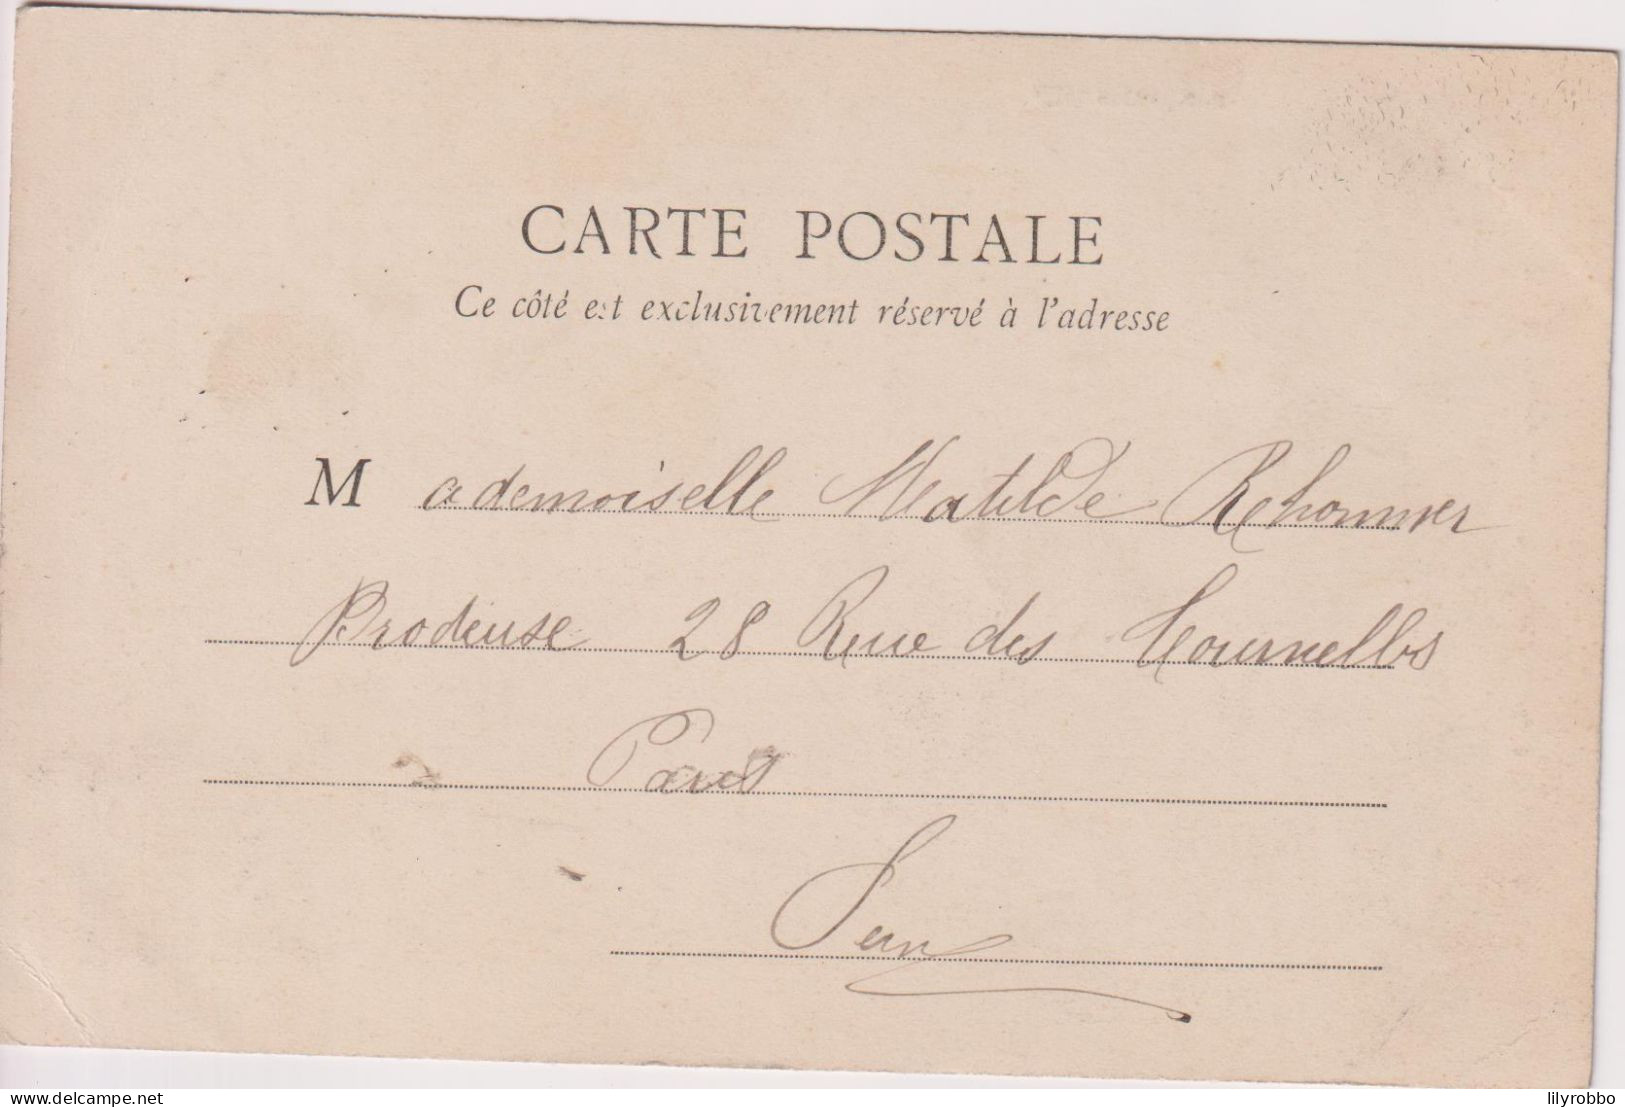 CARTE POSTALE
Ce côté est exclusivement réservé à l'adresse
Mademoiselle Matilde
Brodeuse 28 Rue des Tournelles
Paris
Seine
delcampe.net
lilyrobbo